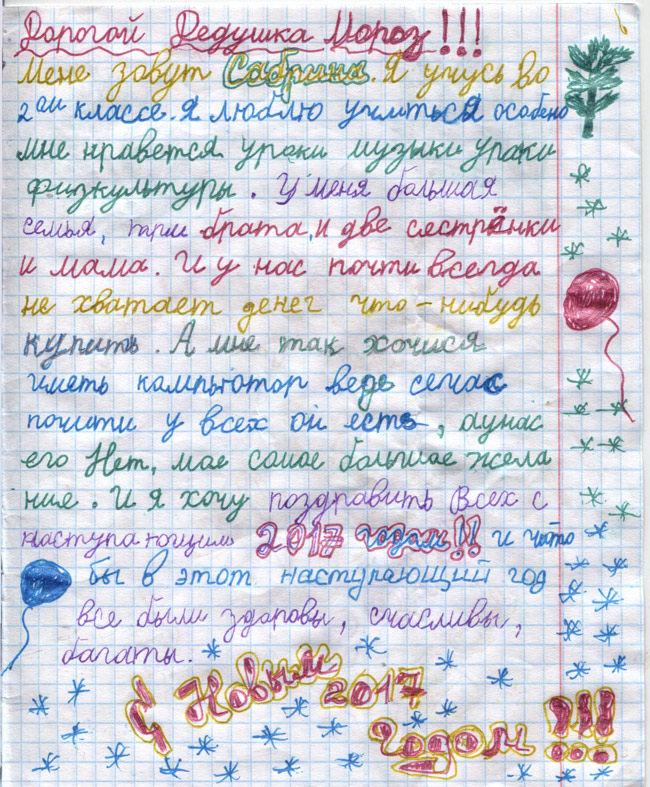 Дорогой Дедушка Мороз!!!
Мене зовут Сабрина. Я учусь во
2ом классе. Я люблю учиться особено
мне нравется уроки музыки уроки
физкультуры. У меня большая
семья, три брата, и две сестрёнки
и мама. И у нас почти всегда
не хватает денег что-нибудь
купить. А мне так хочися
иметь компьютор ведь сечас
почити у всех он есть, а у нас
его Нет, мое самое большое жела
ние. И я хочу поздравить Всех с
наступающим 2017 годом!! и что
бы в этот наступающий год
все были здоровы, счасливы,
багаты.
С Новым 2017
Годом!!!